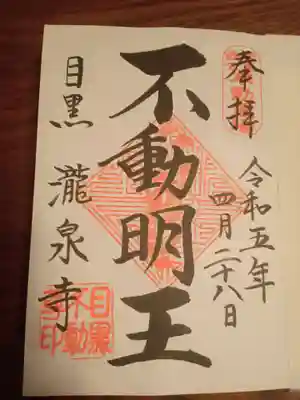 奉拝
令和五年
四月二十八日
不動明王
目黒 瀧泉寺
目黒
不動
寺印